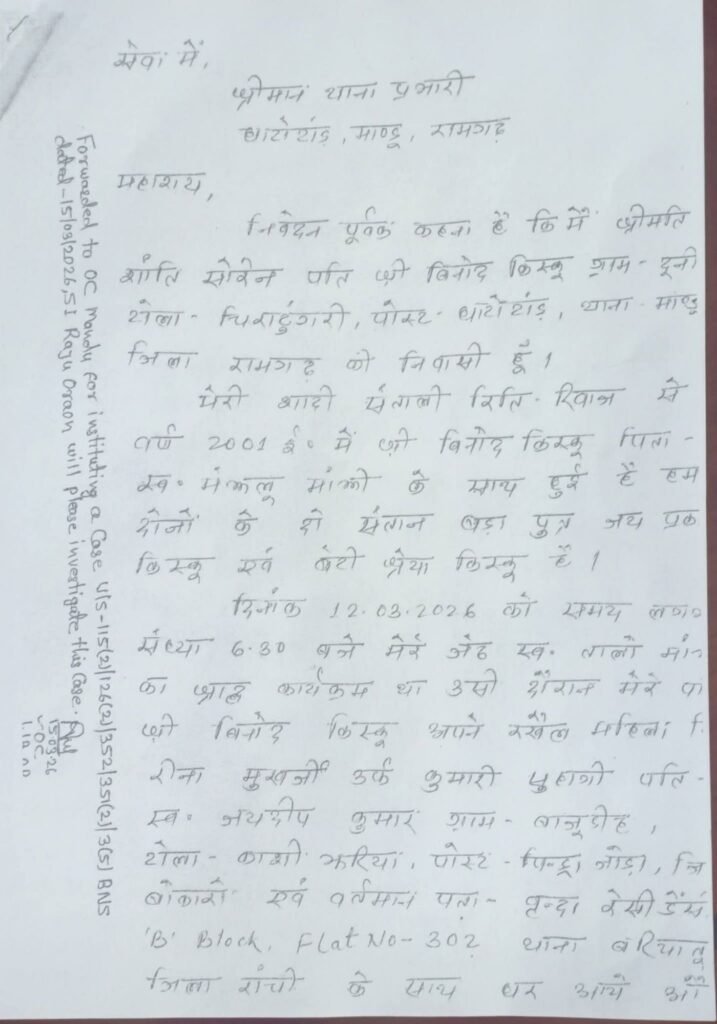 सेवा में,
श्रीमान थाना प्रभारी
घाटोटांड़, माण्डू, रामगढ़
महाशय,
निवेदन पूर्वक कहना है कि मैं श्रीमति
शांति सोरेन पति श्री बिनोद किस्कू ग्राम- दूनी
टोला- चिराटुंगरी, पोस्ट- घाटोटांड़, थाना- माण्डू
जिला रामगढ़ की निवासी हूँ।
मेरी शादी संताली रिति-रिवाज से
वर्ष 2001 ई० में श्री बिनोद किस्कू पिता-
स्व० मंगलू मांझी के साथ हुई है हम
दोनों के दो संतान बड़ा पुत्र जय प्रक
किस्कू एवं बेटी श्रेया किस्कू है।
दिनांक 12.03.2026 को समय लग०
संध्या 6.30 बजे मेरे जेठ स्व० तालो मां
का श्राद्ध कार्यक्रम था उसी दौरान मेरे प
श्री बिनोद किस्कू अपने रखैल महिला
रीना मुखर्जी उर्फ कुमारी सुहागी पति-
स्व० जयदीप कुमार ग्राम- बाजूडीह,
टोला- काशी झरिया, पोस्ट- पिन्ड्रा जोड़ा, जि
बोकारो एवं वर्तमान पता- वृन्दा रेसीडेंस
'B' Block, Flat No- 302 थाना बरियातु
जिला रांची के साथ घर आये औ
Forwarded to OC Mandu for instituting a Case u/s-115(2)/126(2)/352/351(2)/3(5) BNS
dated-15/03/2026, SI Raju Oraon will please investigate this Case.
15.03.26
OC